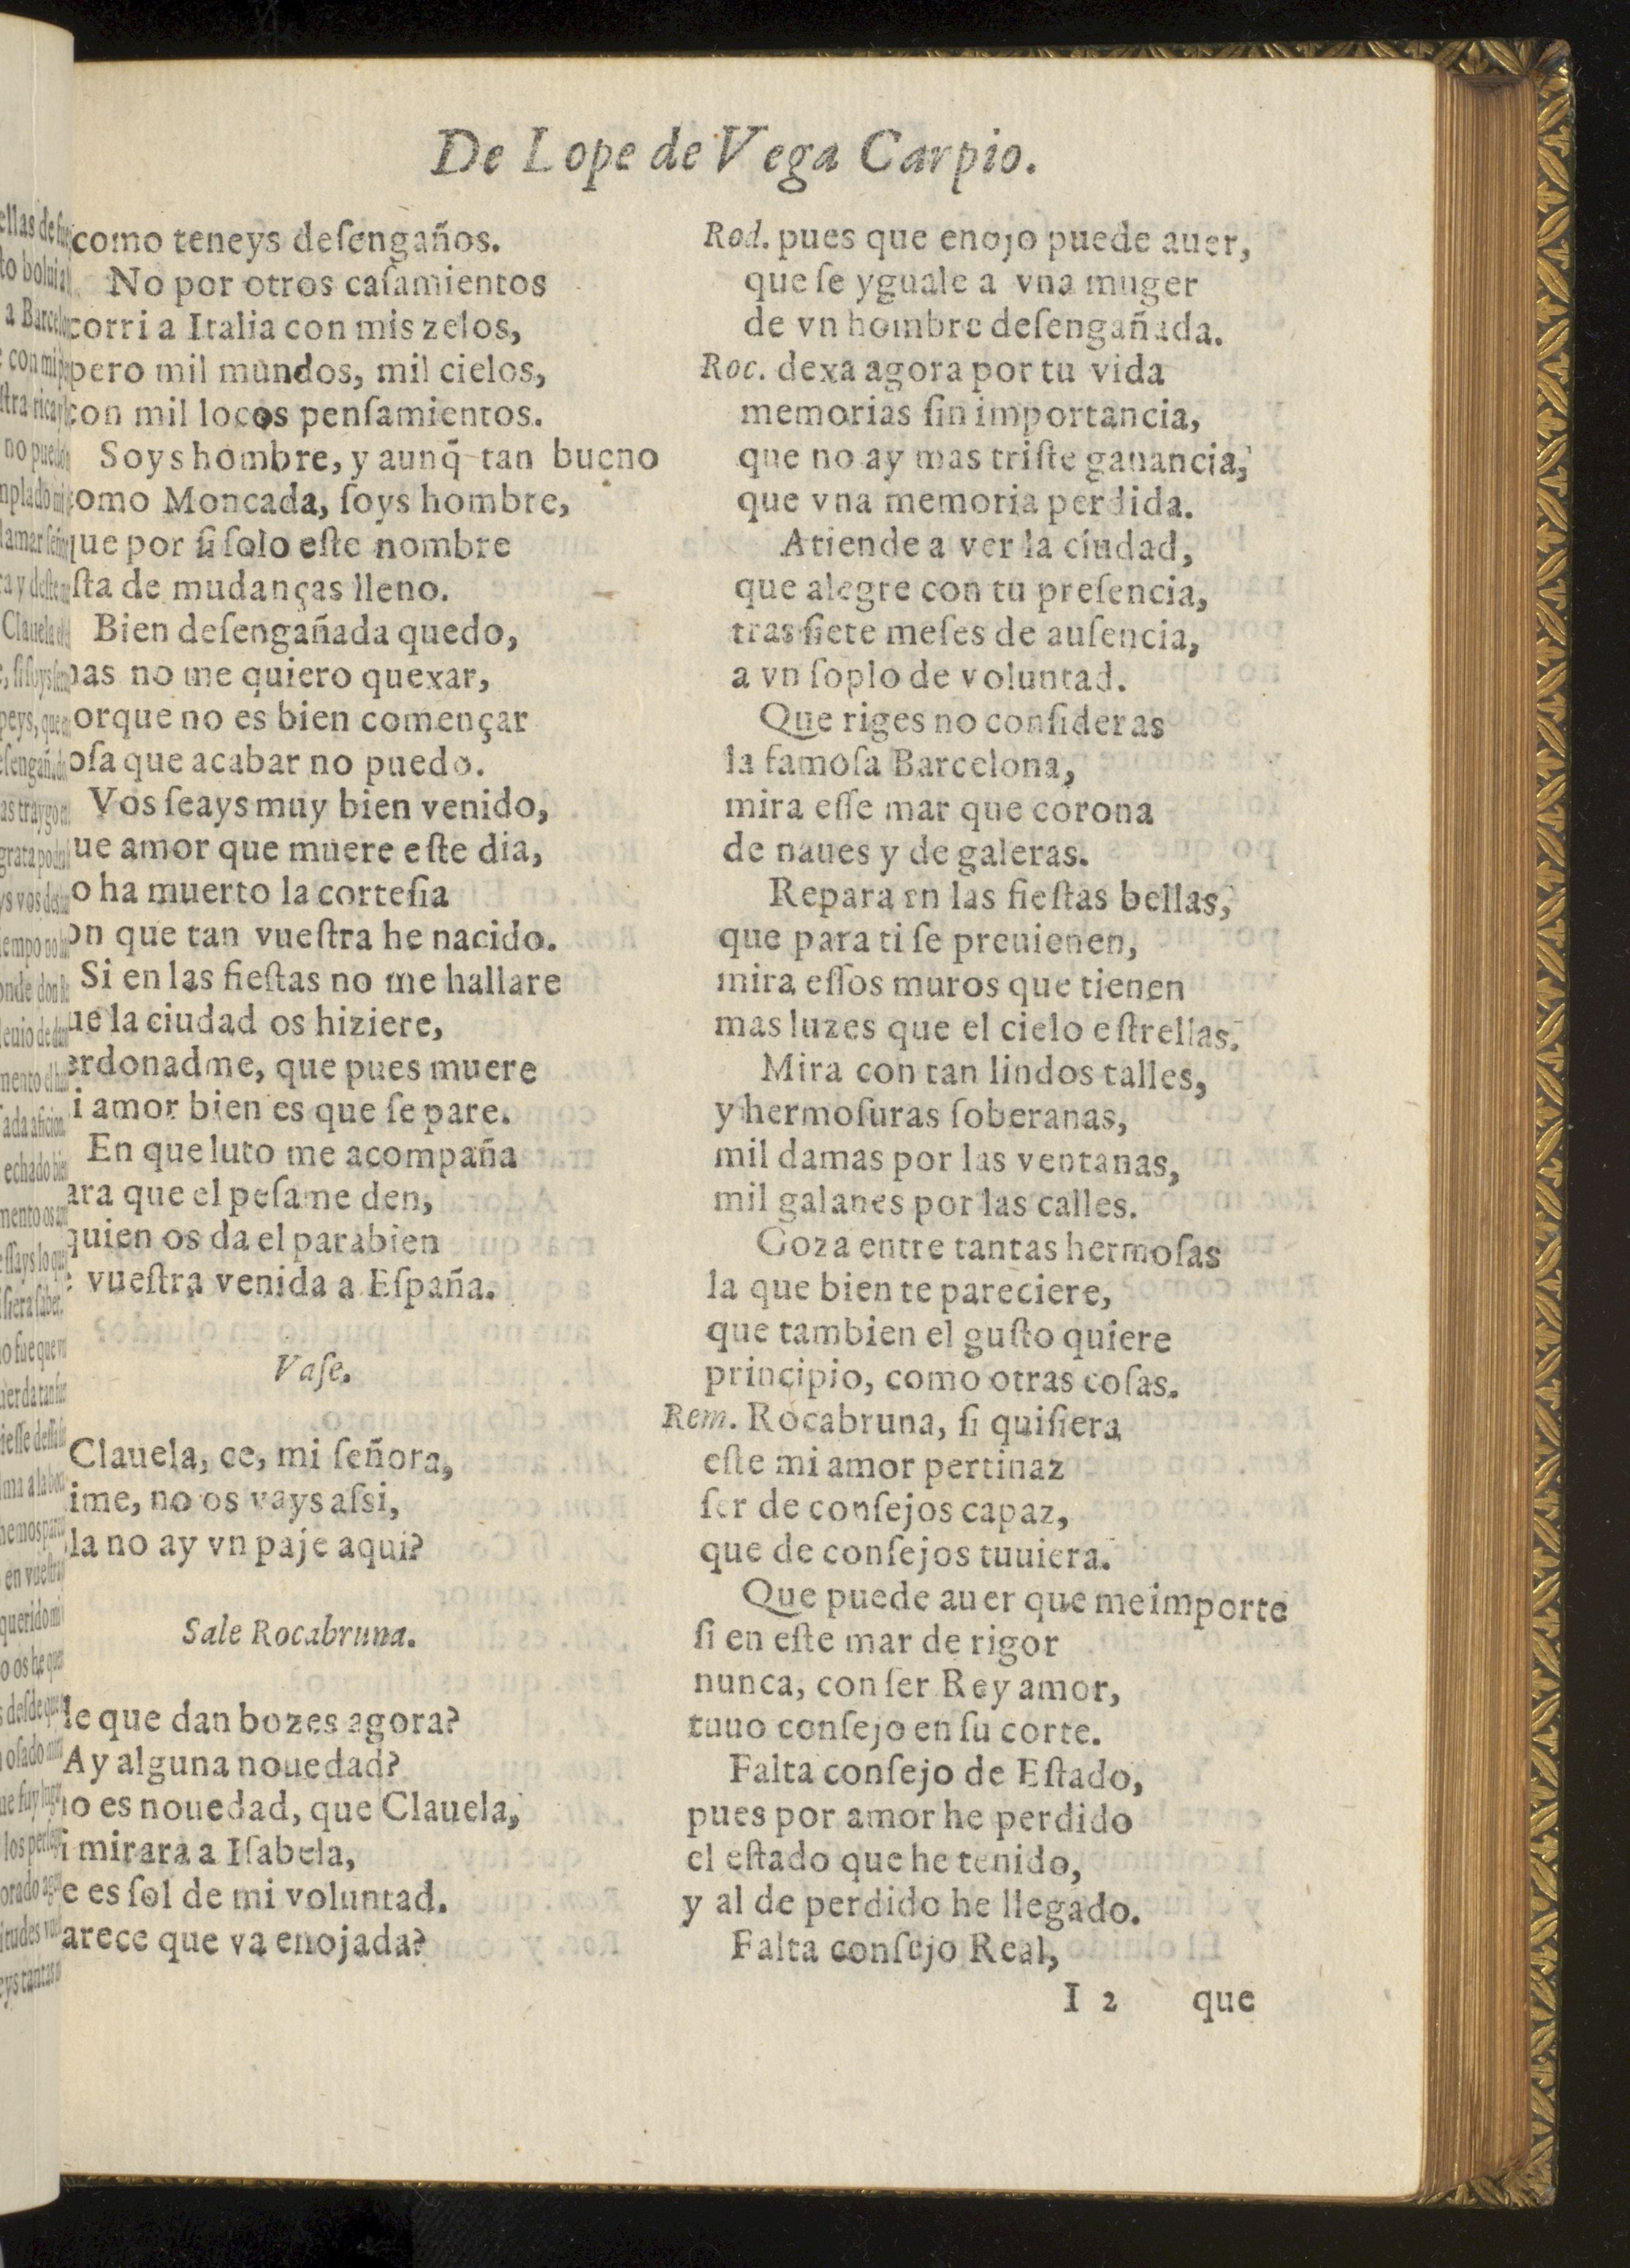 De Lope de Vega Carpio.
como teneys deſengaños.
No por otros caſamientos
corri a Italia con mis zelos,
pero mil mundos, mil cielos,
con mil locos penſamientos.
Soys hombre, y aunq̃ tan bueno
como Moncada, ſoys hombre,
que por ſi ſolo eſte nombre
ſta de mudanças lleno.
Bien deſengañada quedo,
mas no me quiero quexar,
orque no es bien començar
oſa que acabar no puedo.
Vos ſeays muy bien venido,
ue amor que muere eſte dia,
o ha muerto la corteſia
on que tan vueſtra he nacido.
Si en las fieſtas no me hallare
ue la ciudad os hiziere,
erdonadme, que pues muere
i amor bien es que ſe pare.
En que luto me acompaña
ara que el peſame den,
quien os da el parabien
e vueſtra venida a Eſpaña.
Vaſe.
Clauela, ce, mi ſeñora,
ime, no os vays aſsi,
la no ay vn paje aqui?
Sale Rocabruna.
le que dan bozes agora?
Ay alguna nouedad?
no es nouedad, que Clauela,
i mirara a Iſabela,
e es ſol de mi voluntad.
arece que va enojada?
Rod. pues que enojo puede auer,
que ſe yguale a vna muger
de vn hombre deſengañada.
Roc. dexa agora por tu vida
memorias ſin importancia,
que no ay mas triſte ganancia,
que vna memoria perdida.
Atiende a ver la ciudad,
que alegre con tu preſencia,
tras ſiete meſes de auſencia,
a vn ſoplo de voluntad.
Que riges no conſideras
la famoſa Barcelona,
mira eſſe mar que corona
de naues y de galeras.
Repara en las fieſtas bellas,
que para ti ſe preuienen,
mira eſſos muros que tienen
mas luzes que el cielo eſtrellas.
Mira con tan lindos talles,
y hermoſuras ſoberanas,
mil damas por las ventanas,
mil galanes por las calles.
Goza entre tantas hermoſas
la que bien te pareciere,
que tambien el guſto quiere
principio, como otras coſas.
Rem. Rocabruna, ſi quiſiera
eſte mi amor pertinaz
ſer de conſejos capaz,
que de conſejos tuuiera.
Que puede auer que me importe
ſi en eſte mar de rigor
nunca, con ſer Rey amor,
tuuo conſejo en ſu corte.
Falta conſejo de Eſtado,
pues por amor he perdido
el eſtado que he tenido,
y al de perdido he llegado.
Falta conſejo Real,
I 2 que